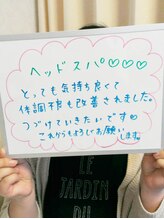 ヘッドスパ♡♡♡
とっても気持ち良くて
体調不良も改善されました。
つづけていきたいです♡
これからもよろしくお願い
します。
LE
JARDIN
DU